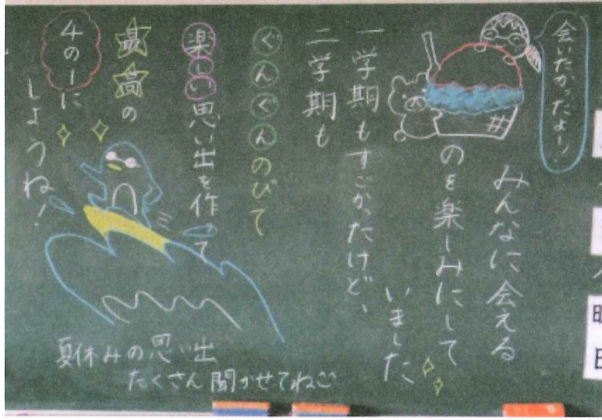 会いたかったよー!
みんなに会える
のを楽しみにして
いました
一学期もすごかったけど、
二学期も
ぐんぐんのびて
楽しい思い出を作って
最高の
4の1に
しようね!
夏休みの思い出
たくさん聞かせてね